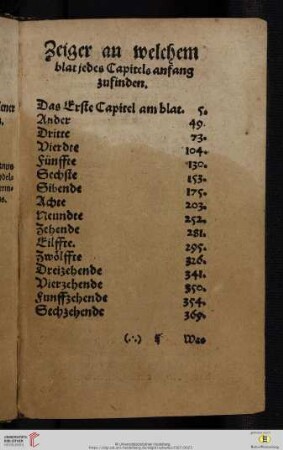 Zeiger an welchem
blat jedes Capitels anfang
zufinden.
Das Erste Capitel am blat. 5.
Ander 49.
Dritte 73.
Vierdte 104.
Fünffte 130.
Sechste 153.
Sibende 175.
Achte 203.
Neundte 252.
Zehende 281.
Eilffte. 295.
Zwölffte 326.
Dreizehende 341.
Vierzehende 350.
Funffzehende 354.
Sechzehende 369.
(∴) Was